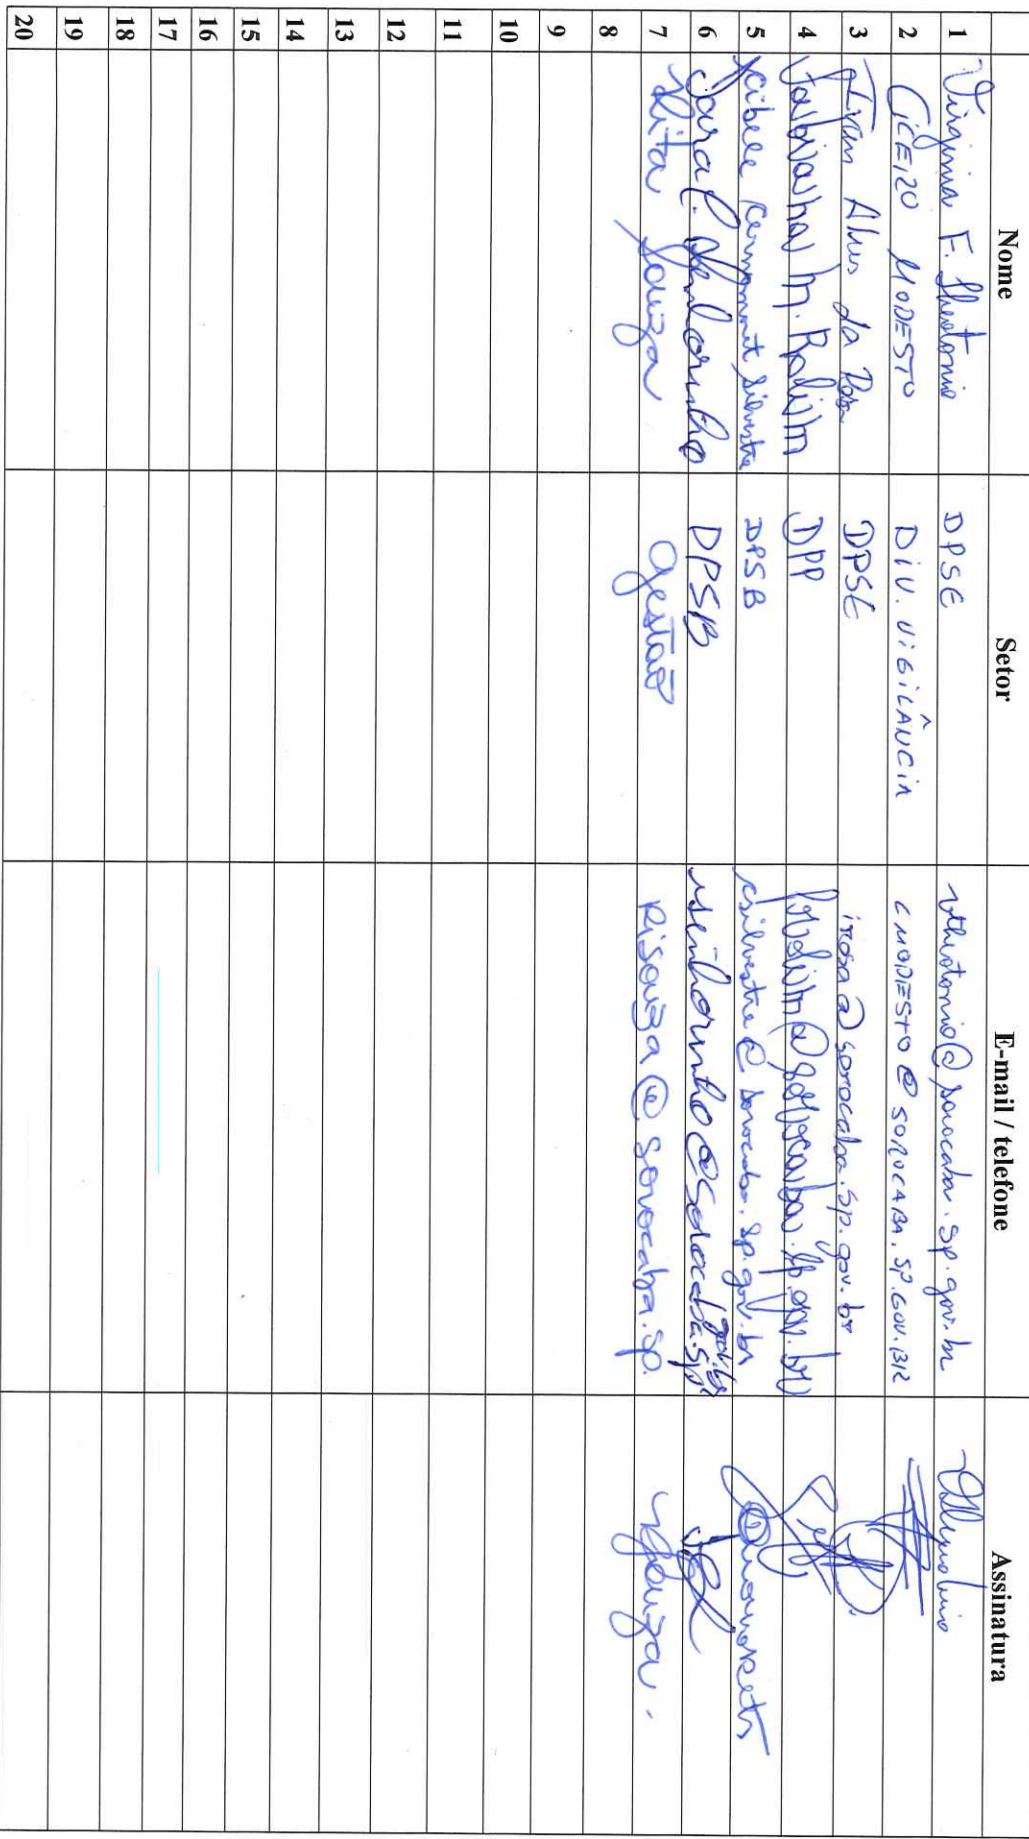 Nome Setor E-mail / telefone Assinatura
1 Virginia F. Theotonio DPSE vtheotonio@sorocaba.sp.gov.br
2 CICERO MODESTO DIV. VIGILÂNCIA CMODESTO@SOROCABA.SP.GOV.BR
3 Ivan Alves da Rosa DPSE irosa@sorocaba.sp.gov.br
4 Fabiana M. Rolim DPP frolim@sorocaba.sp.gov.br
5 Cibele Silvestre DPSB csilvestre@sorocaba.sp.gov.br
6 DPSB @sorocaba.sp.gov.br
7 Rita Souza Gestão risouza@sorocaba.sp. Souza.
8
9
10
11
12
13
14
15
16
17
18
19
20